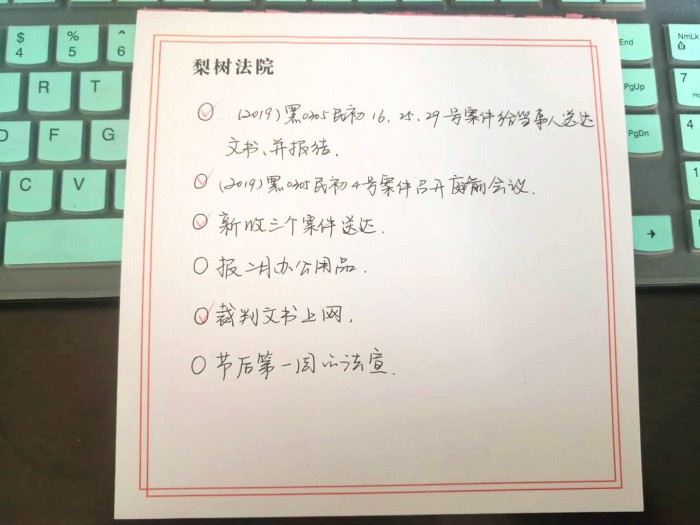 梨树法院
(2019)黑0305民初16.25.29号案件给当事人送达
文书、并报结.
(2019)黑0305民初4号案件召开庭前会议.
新收三个案件送达.
报二月办公用品.
裁判文书上网.
节后第一周 法宣.
$
4
%
5
^
6
R
T
D
F
G
C
V
End
NmLk
PgUp
7
PgDn
4
1
→